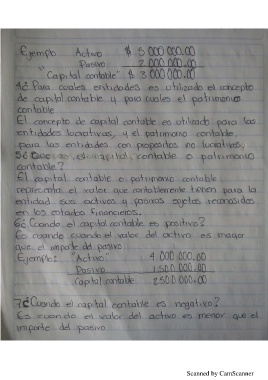 Ejemplo Activo $ 5 000 000.00
Pasivo 2 000 000.00
"Capital contable" $ 3 000 000.00
4¿ Para cuales entidades es utilizado el concepto
de capital contable y para cuales el patrimonio
contable
El concepto de capital contable es utilizado para las
entidades lucrativas, y el patrimonio contable,
para las entidades con propositos no lucrativos.
5¿ Que es el capital contable o patrimonio
contable?
El capital contable o patrimonio contable
representa el valor que contablemente tienen para la
entidad sus activos y pasivos sujetos reconocidos
en los estados financieros.
6¿ Cuando el capital contable es positivo?
Es cuando cuando el valor del activo es mayor
que el importe del pasivo
Ejemplo: "Activo" 4 000 000.00
Pasivo 1 500 000.00
Capital contable 2 500 000.00
7¿Cuando el capital contable es negativo?
Es cuando en valor del activo es menor que el
importe del pasivo
Scanned by CamScanner